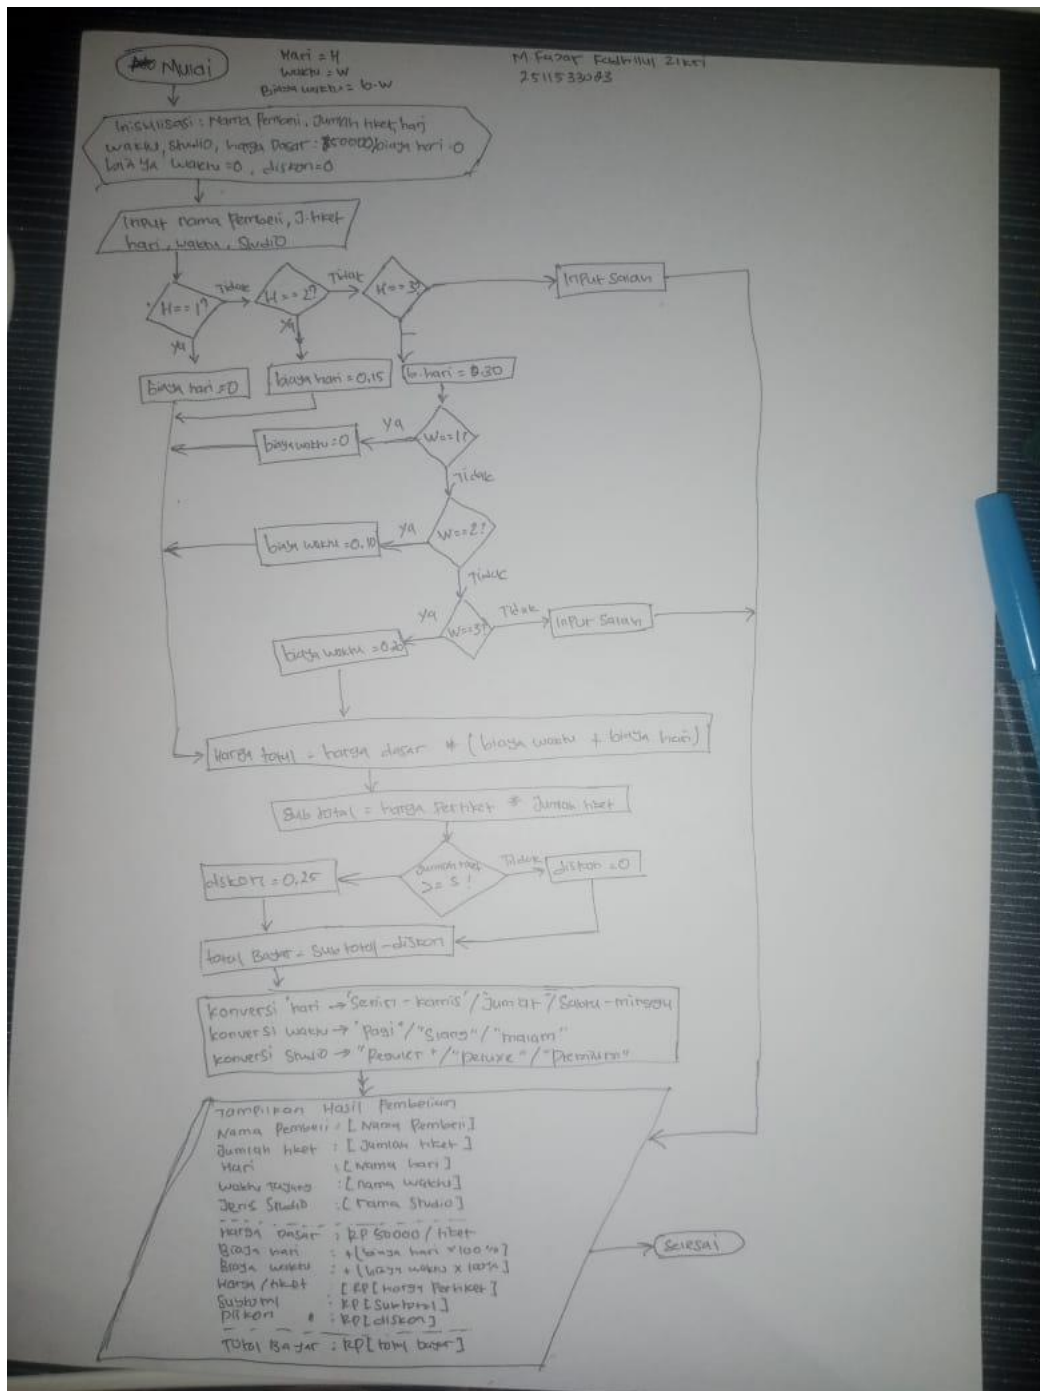 Mulai
Hari = H
Waktu = W
Biaya waktu = b.w
M. Fajar Fadhillul Zikri
2511533083
Inisialisasi : Nama Pembeli, Jumlah tiket, hari
waktu, Studio, harga Dasar : 50000, biaya hari = 0
biaya waktu = 0, diskon = 0
Input nama Pembeli, J. tiket
hari, waktu, Studio
H == 1?
Tidak
H == 2?
Tidak
H == 3?
Input Salah
ya
ya
biaya hari = 0
biaya hari = 0,15
b. hari = 0.30
W == 1?
ya
biaya waktu = 0
Tidak
W == 2?
ya
biaya waktu = 0,10
Tidak
W == 3?
ya
Tidak
Input Salah
biaya waktu = 0.20
Harga total = harga dasar * (biaya waktu + biaya hari)
Sub total = harga Pertiket * Jumlah tiket
Jumlah tiket
>= 5?
Tidak
diskon = 0
diskon = 0,25
total Bayar = Sub total - diskon
konversi 'hari → 'Senin - kamis' / Jumat" / Sabtu - minggu
konversi waktu → 'Pagi" / "Siang" / "malam"
konversi Studio → "Reguler" / "Deluxe" / "Premium"
Tampilkan Hasil Pembelian
Nama Pembeli : [ Nama Pembeli ]
Jumlah tiket : [ Jumlah tiket ]
Hari : [ Nama hari ]
Waktu Tayang : [ nama waktu ]
Jenis Studio : [ nama Studio ]
Harga Dasar : RP 50000 / tiket
Biaya hari : + [ biaya hari × 100 % ]
Biaya waktu : + [ biaya waktu × 100% ]
Harga / tiket [ RP [ Harga Pertiket ]
Subtotal : RP [ Subtotal ]
Diskon : RP [ diskon ]
Total Bayar : RP [ total bayar ]
Selesai